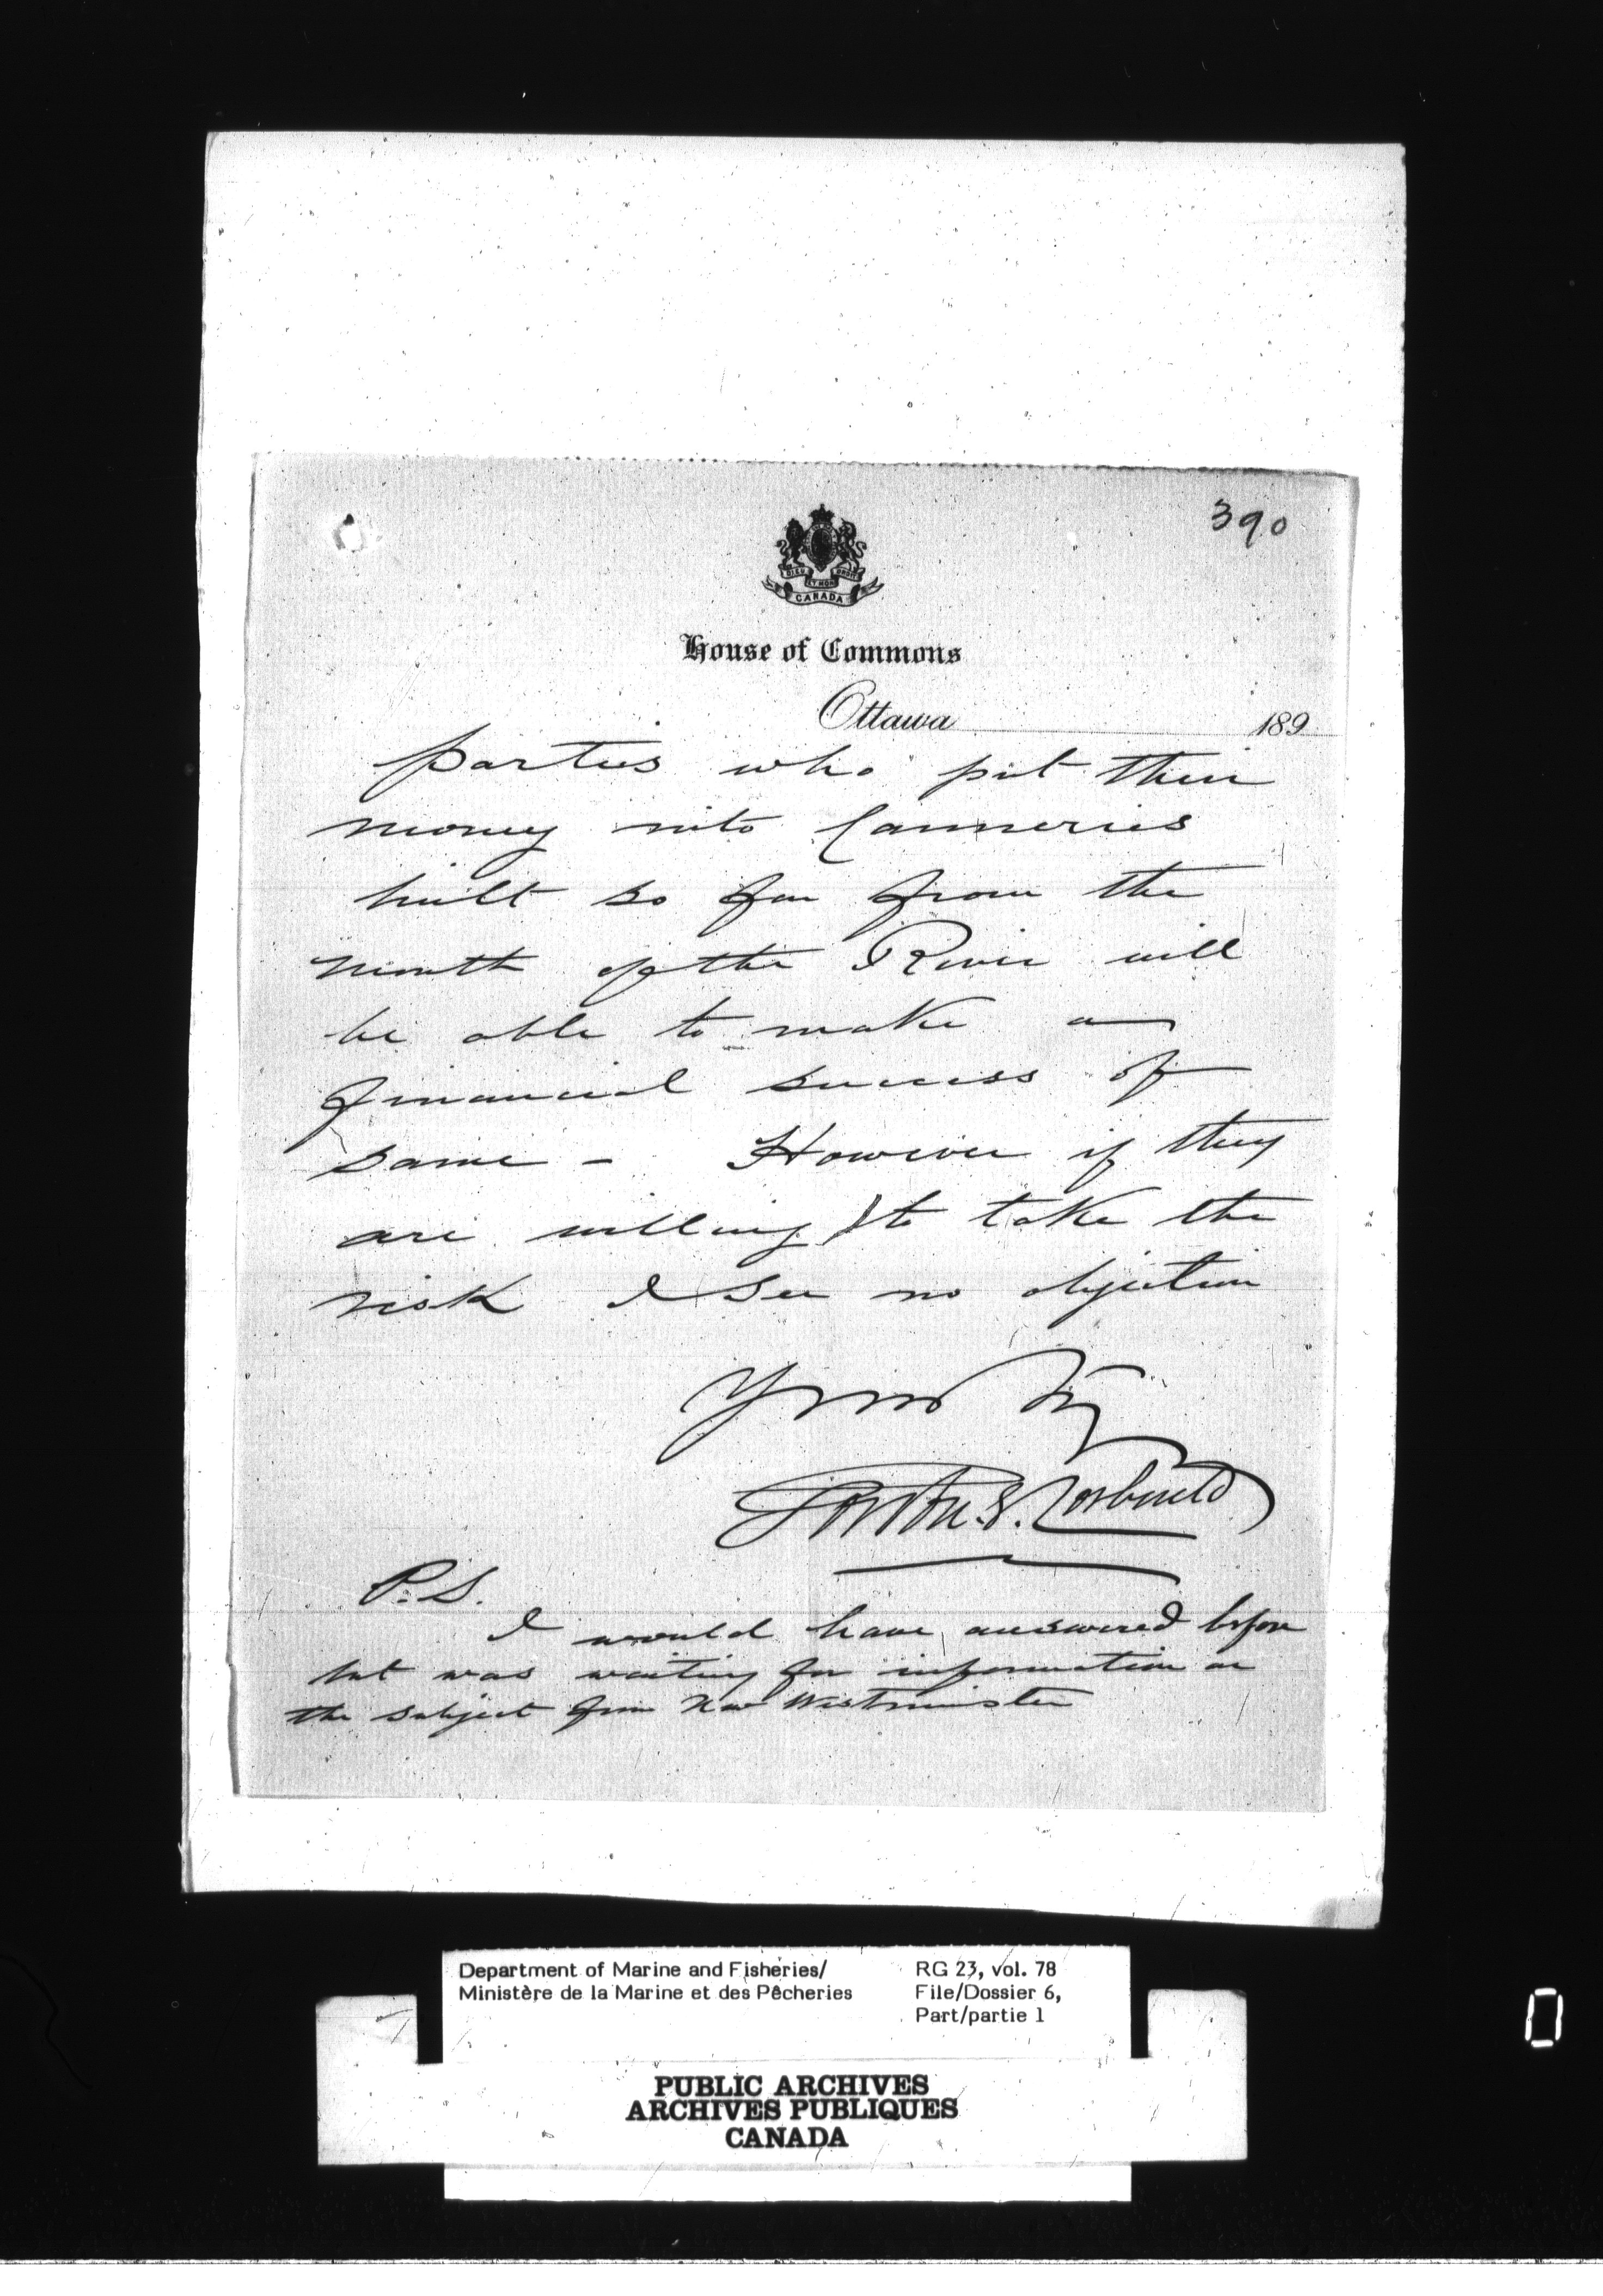 390
DIEU ET MON DROIT
CANADA
House of Commons
Ottawa 189
parties who put their
money into Canneries
built so far from the
mouth of the River will
be able to make a
financial success of
same - However if they
are willing to take the
risk I see no objection
Yours
Gordon E. Corbould
P.S.
I would have answered before
but was waiting for information on
the subject from New Westminster
Department of Marine and Fisheries/
Ministère de la Marine et des Pêcheries
RG 23, vol. 78
File/Dossier 6,
Part/partie 1
PUBLIC ARCHIVES
ARCHIVES PUBLIQUES
CANADA